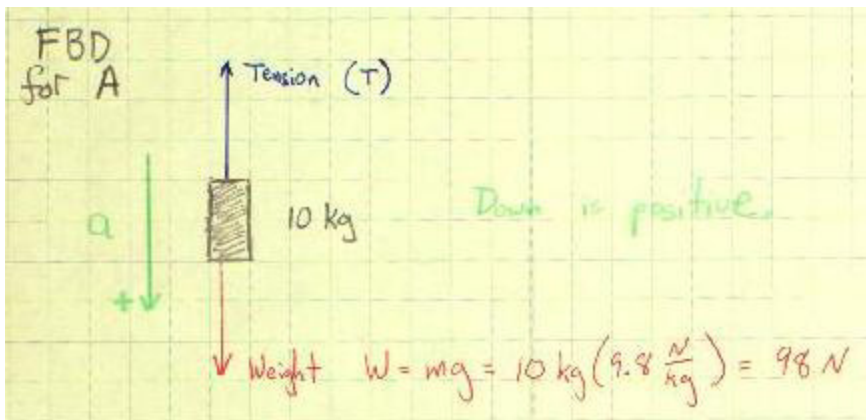 FBD
for A
Tension (T)
a
10 kg
Down is positive.
+
Weight W = mg = 10 kg (9.8 N/kg) = 98 N